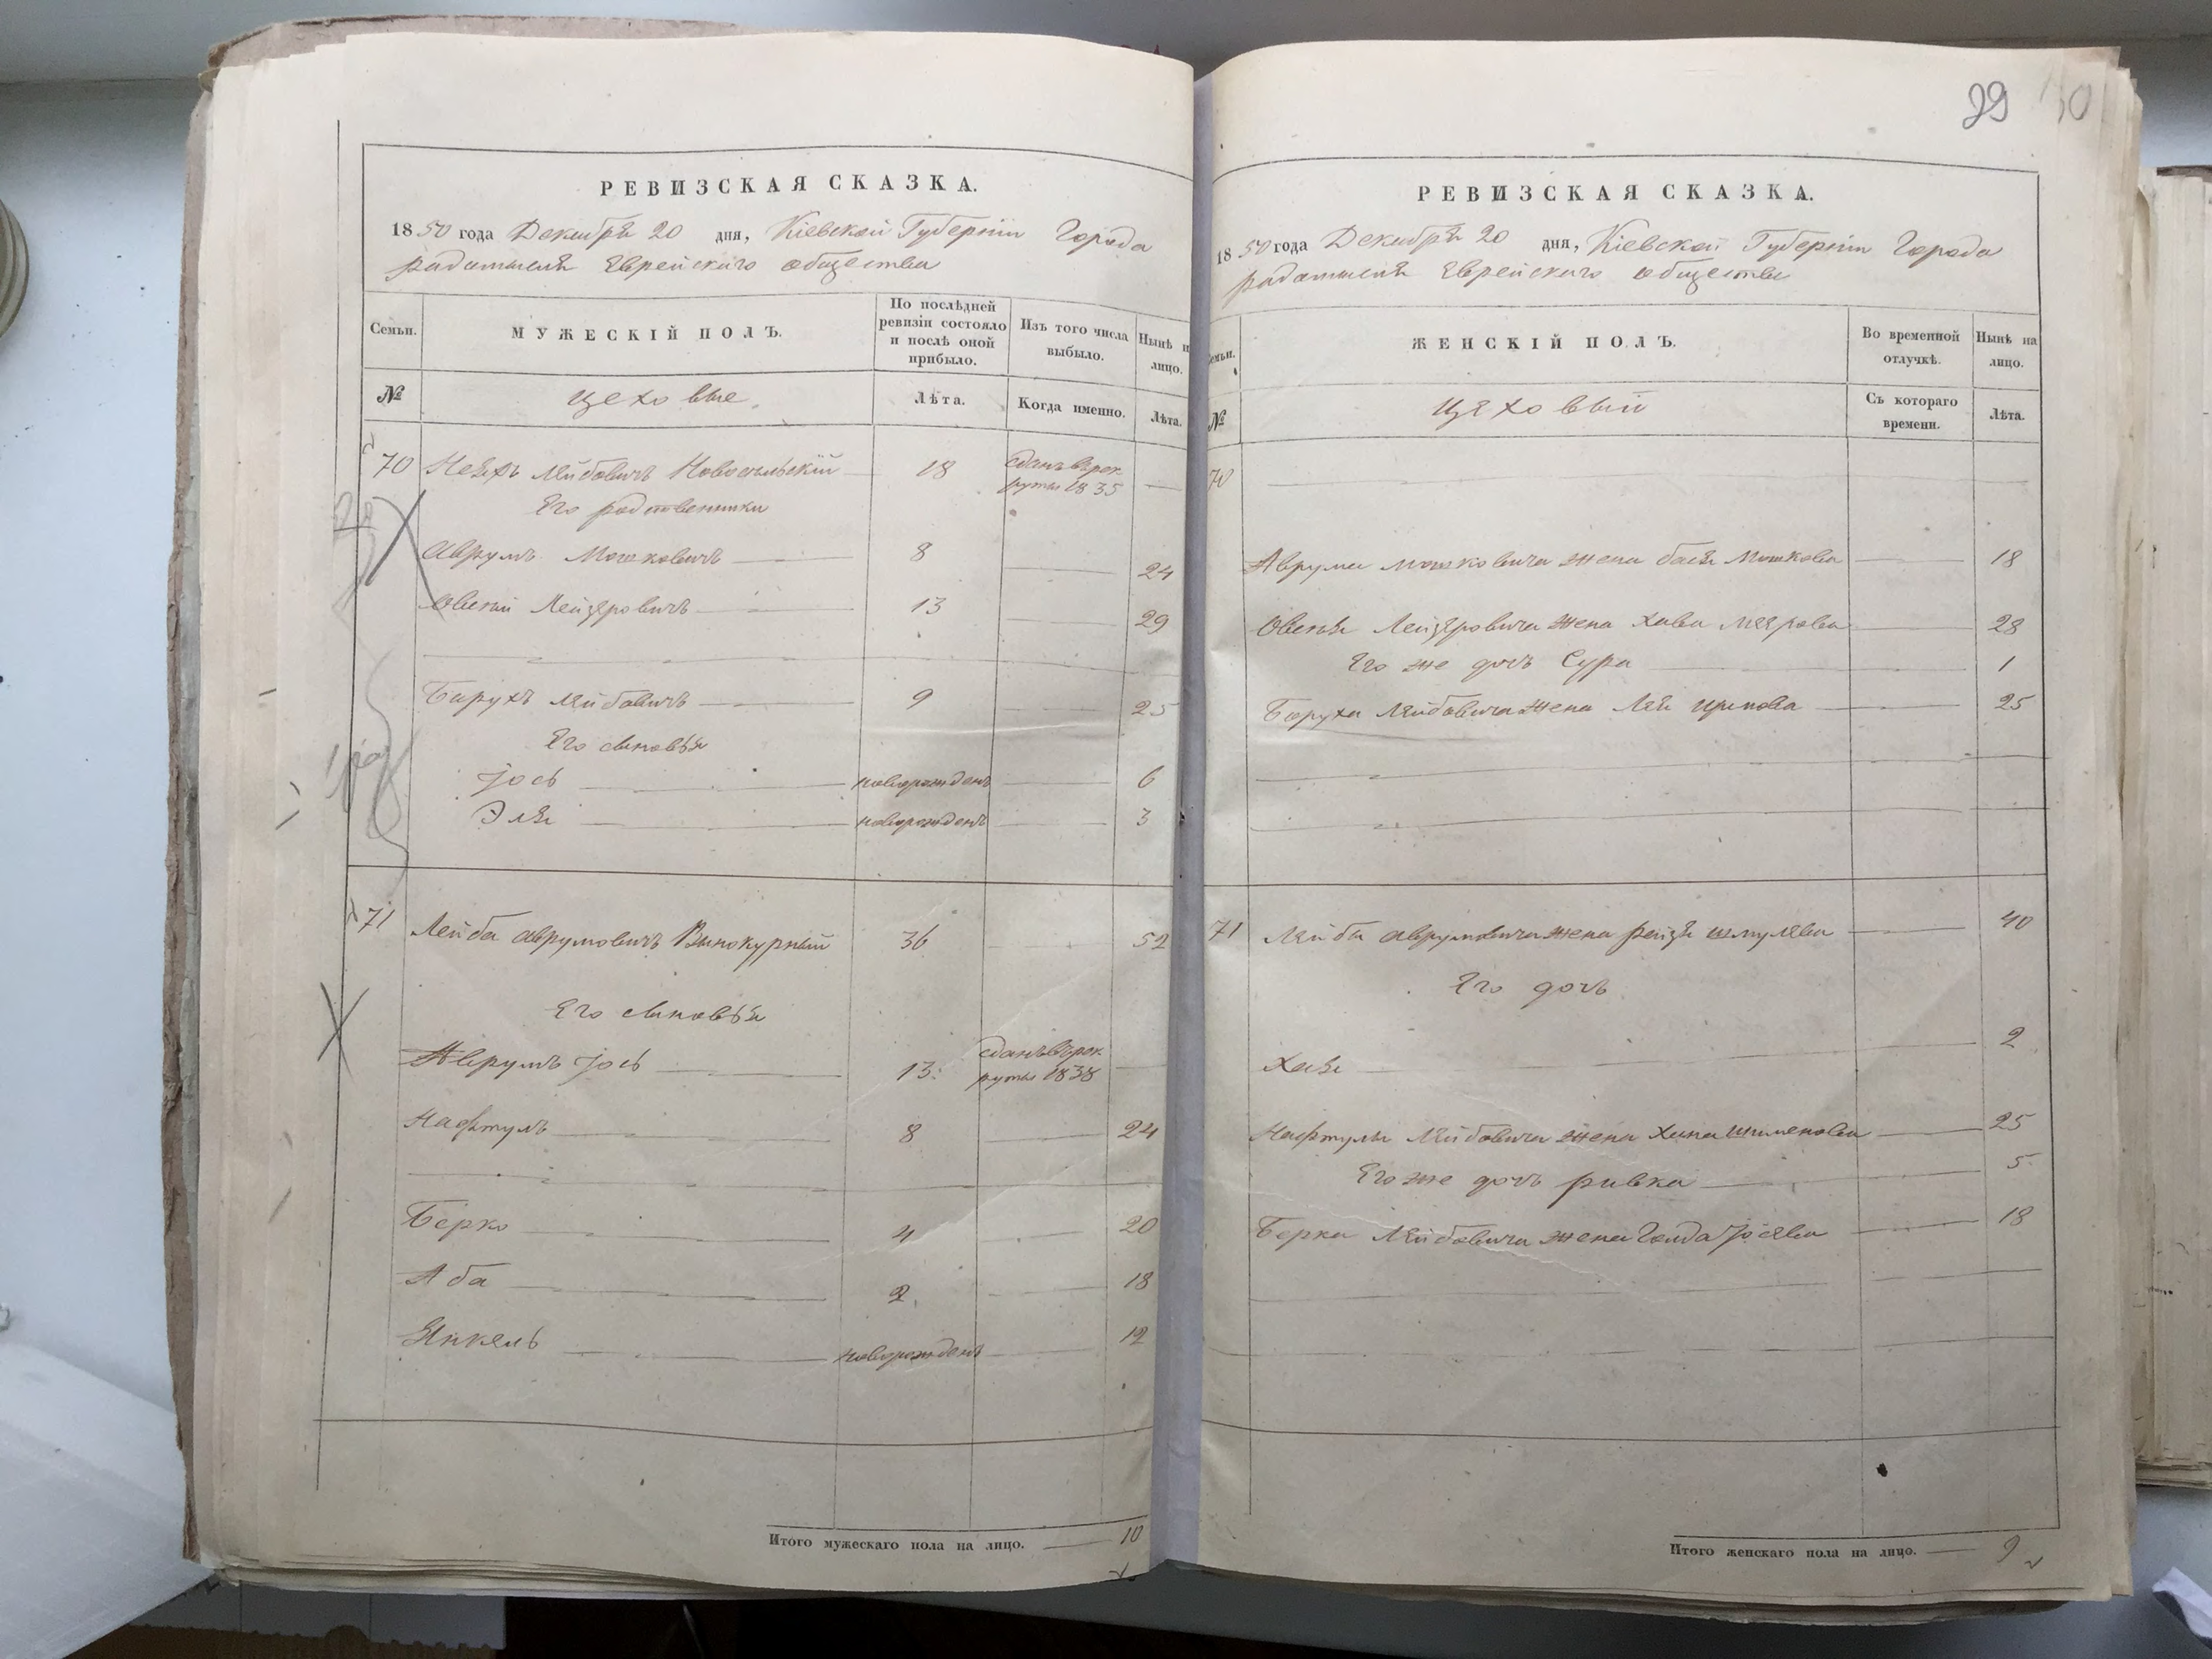 29
РЕВИЗСКАЯ СКАЗКА.
1850 года Декабря 20 дня, Кіевской Губерніи Города
радомысля Еврейскаго общества
Семьи.
МУЖЕСКІЙ ПОЛЪ.
По послѣдней ревизіи состояло и послѣ оной прибыло.
Изъ того числа выбыло.
Нынѣ н лицо.
№
цеховые
Лѣта.
Когда именно.
Лѣта.
70 Лейбовичъ 18 сданъ въ рек
руты 1835
Его родственники
Аврумъ Мошковичъ 8 24
Овсѣй Лейзеровичъ 13 29
Барухъ Лейбовичъ 9 25
Его сыновья
Іось новорожденъ 6
Эля новорожденъ 3
71 Лейба аврумовичъ Винокурный 36 52
Его сыновья
Аврумъ Іось 13 сданъ въ рек
руты 1838
Нафтулъ 8 24
Берко 4 20
Аба 2 18
Янкель новорожденъ 12
Итого мужескаго пола на лицо. 10
РЕВИЗСКАЯ СКАЗКА.
1850 года Декабря 20 дня, Кіевской Губерніи Города
радомысля Еврейскаго общества
емьи.
ЖЕНСКІЙ ПОЛЪ.
Во временной отлучкѣ.
Нынѣ на лицо.
№
Съ котораго времени.
Лѣта.
70
Аврума мошковича жена бася Мошкова 18
Овсѣя Лейзеровича жена Хава 28
Его же дочь Сура 1
Баруха Лейбовича жена Лея 25
71 Лейбы аврумовича жена рейзя шмулева 40
Его дочь
Хая 2
Нафтулы Лейбовича жена Хана 25
Его же дочь ривка 5
Берка Лейбовича жена Голда Іосева 18
Итого женскаго пола на лицо. 9